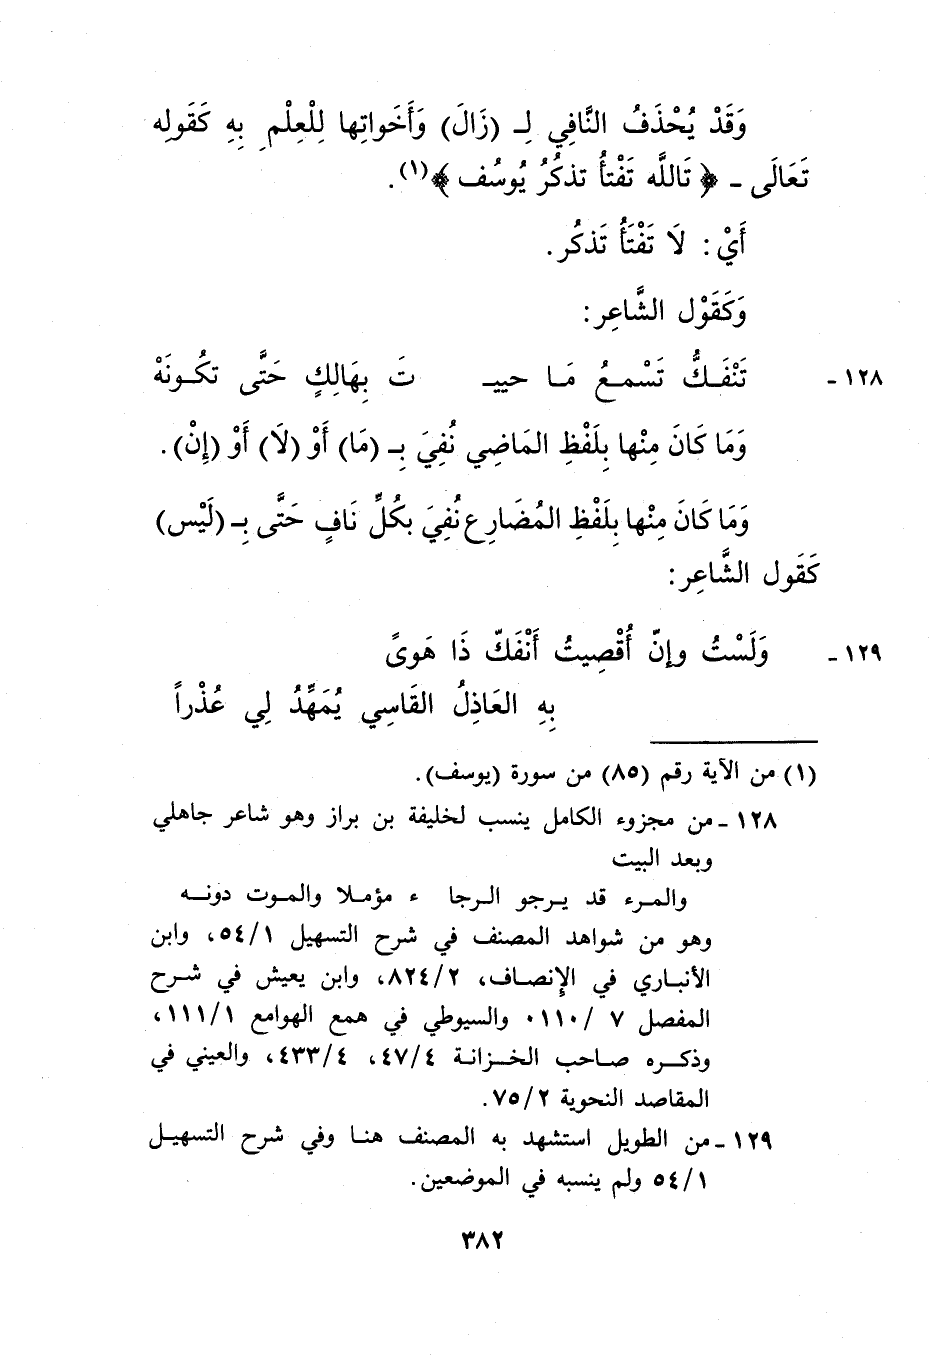 وَقَدْ يُحْذَفُ النَّافِي لِـ (زَالَ) وَأَخَواتِها لِلْعِلْمِ بِهِ كَقَولِه
تَعَالَى ـ ﴿ تَاللَّه تَفْتأُ تذكُرُ يُوسُف ﴾(١).
أَيْ: لَا تَفْتَأُ تَذكُر.
وَكَقَوْل الشَّاعِر:
١٢٨ ـ تَنْفَـكُّ تَسْمـعُ مَـا حييـ تَ بِهَالِكٍ حَتَّى تكُـونَهْ
وَمَا كَانَ مِنْها بِلَفْظِ المَاضِي نُفِيَ بِـ (مَا) أَوْ (لَا) أَوْ (إِنْ).
وَمَا كَانَ مِنْها بِلَفْظِ المُضَارِعِ نُفِيَ بكُلِّ نَافٍ حَتَّى بِـ (لَيْس)
كَقَول الشَّاعِر:
١٢٩ ـ وَلَسْتُ وإنّ أُقْصِيتُ أَنْفَكّ ذَا هَوىً
بِهِ العَاذِلُ القَاسِي يُمَهِّدُ لِي عُذْراً
(١) من الآية رقم (٨٥) من سورة (يوسف).
١٢٨ ـ من مجزوء الكامل ينسب لخليفة بن براز وهو شاعر جاهلي
وبعد البيت
والمـرء قد يـرجو الـرجا ء مؤمـلا والمـوت دونـه
وهو من شواهد المصنف في شرح التسهيل ٥٤/١، وابن
الأنبـاري في الإنصـاف، ٨٢٤/٢، وابن يعيش في شـرح
المفصل ٧ /١١٠٠ والسيوطي في همع الهوامع ١١١/١،
وذكـره صـاحب الخـزانـة ٤٧/٤، ٤٣٣/٤، والعيني في
المقاصد النحوية ٧٥/٢.
١٢٩ ـ من الطويل استشهد به المصنف هنـا وفي شرح التسهيـل
٥٤/١ ولم ينسبه في الموضعين.
٣٨٢